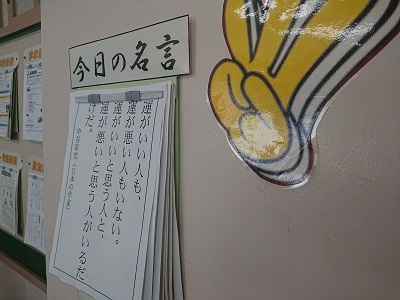 今日の名言
運がいい人も、
運が悪い人もいない。
運がいいと思う人と、
運が悪いと思う人がいるだ
けだ。
中谷彰宏(日本の作家)